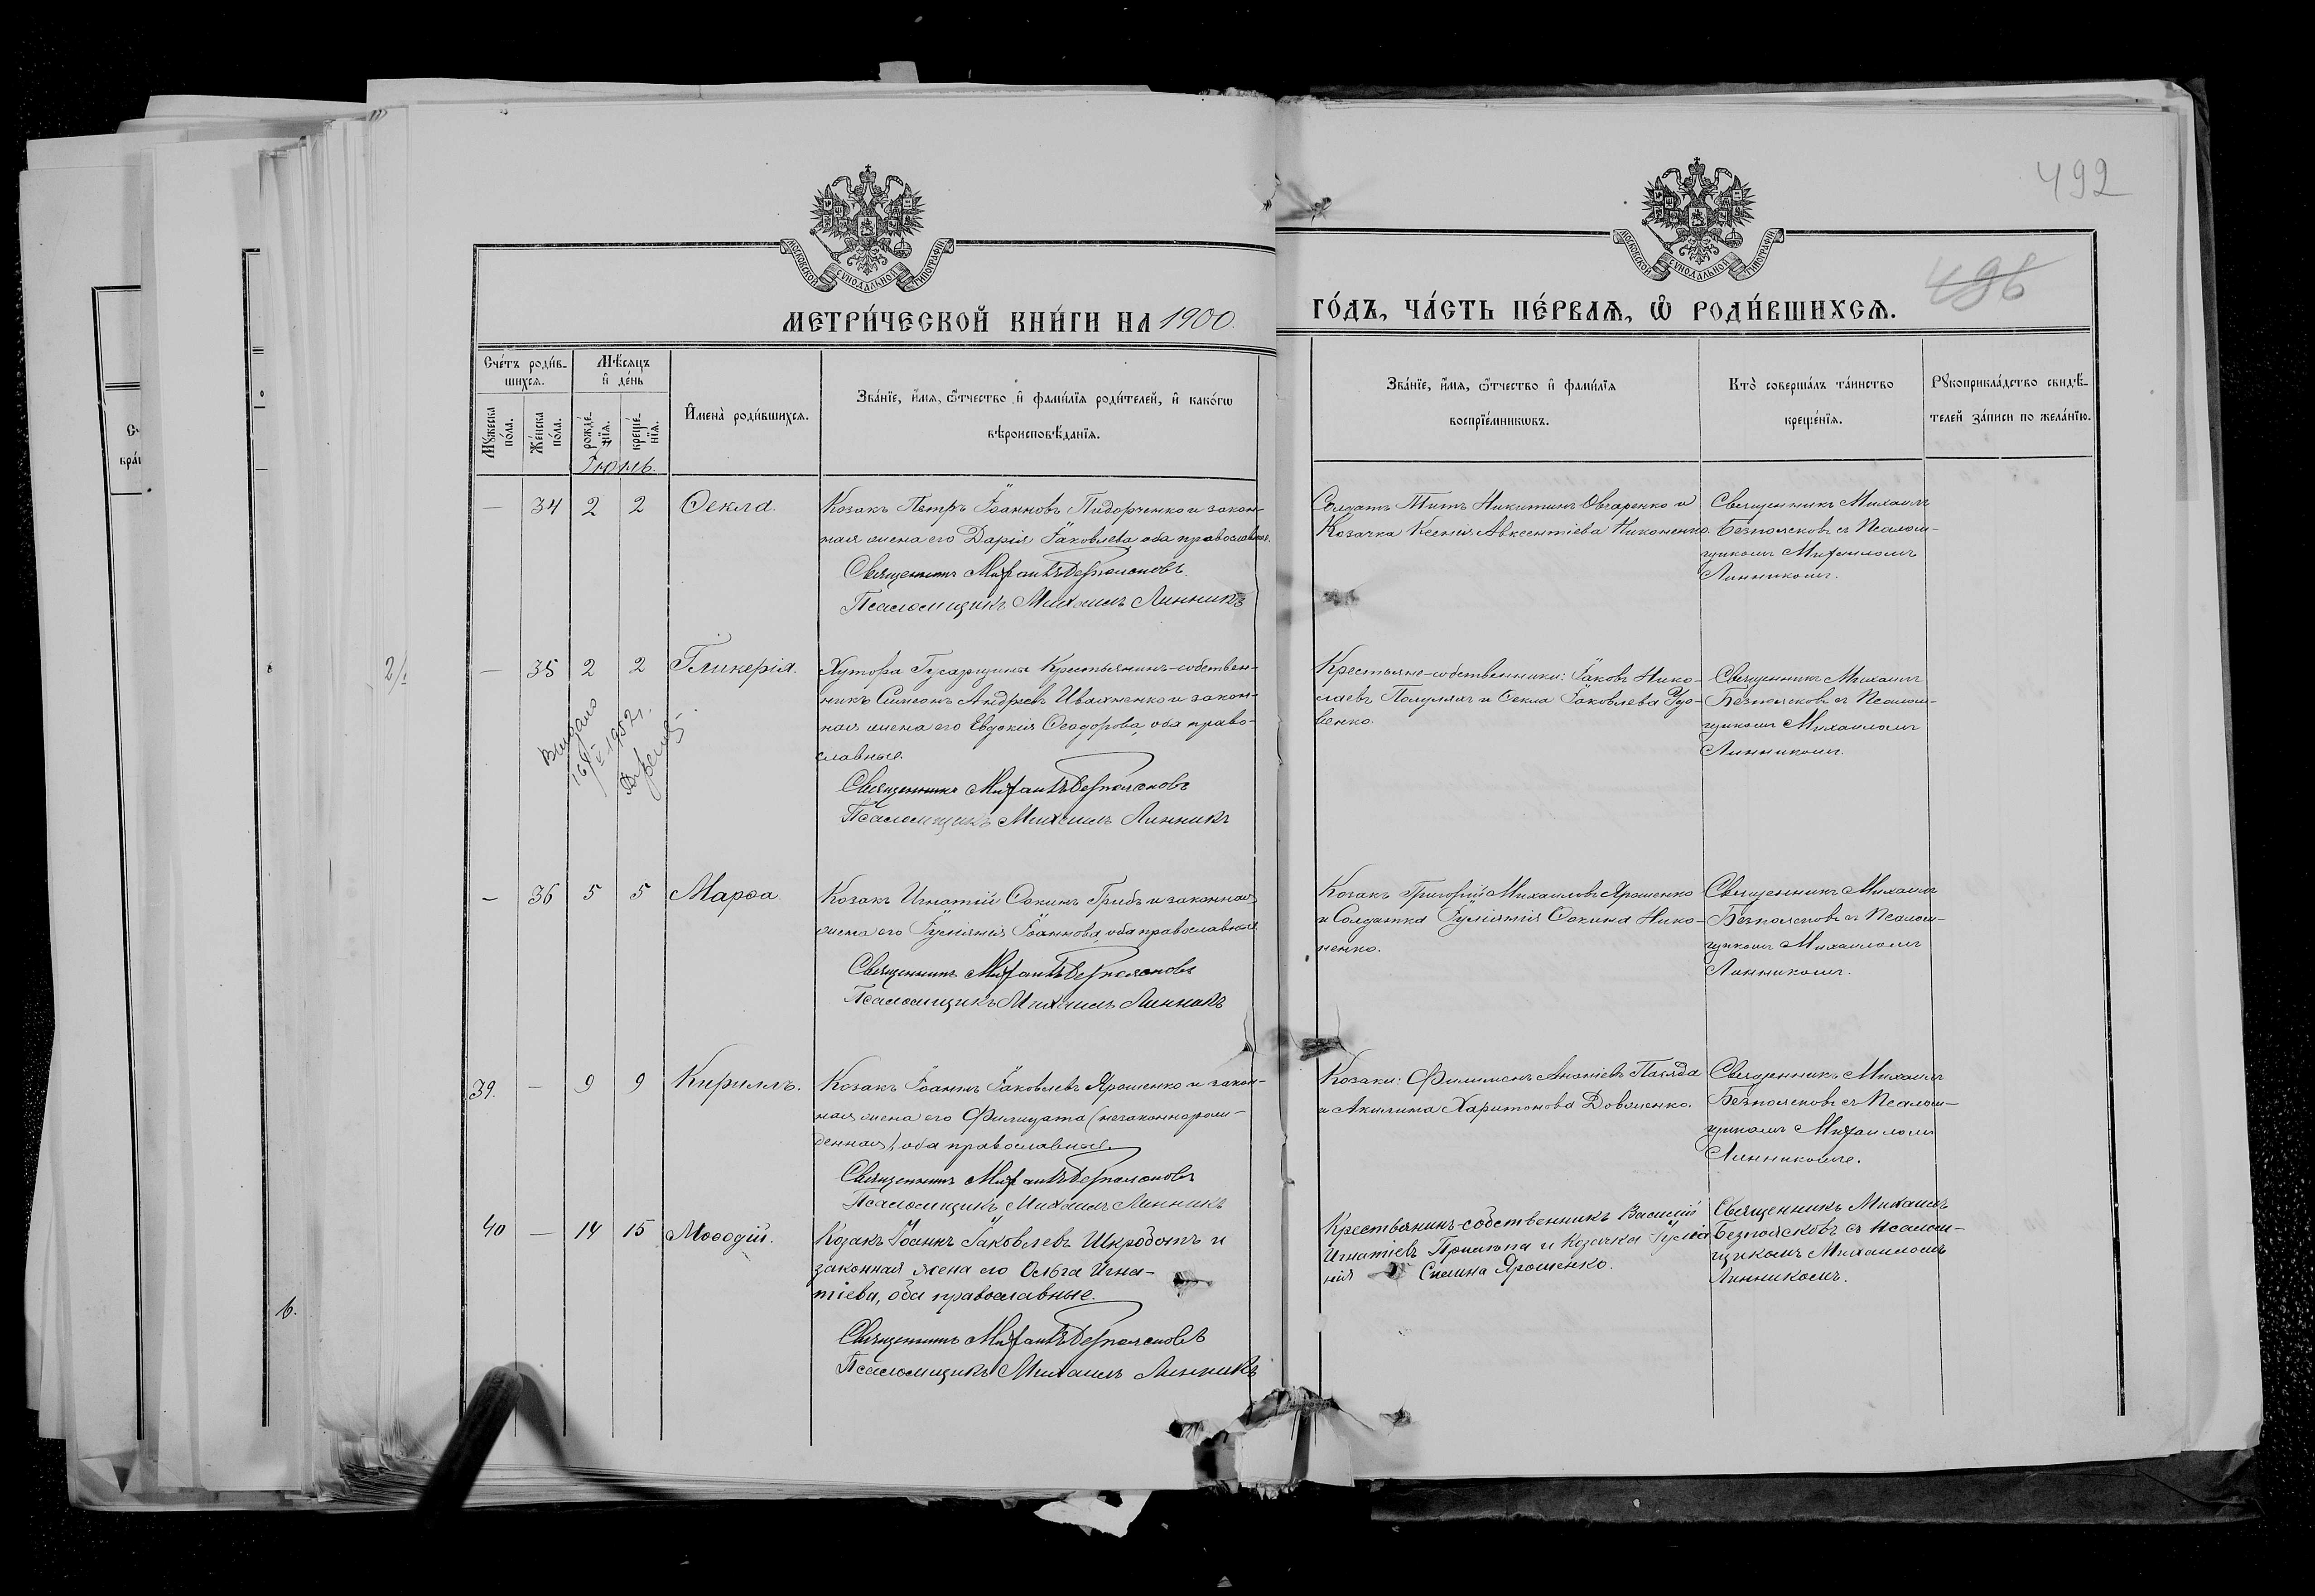 492
496
МОСКОВСКОЙ СѴНОДАЛЬНОЙ ТИПОГРАФІИ
МОСКОВСКОЙ СѴНОДАЛЬНОЙ ТИПОГРАФІИ
МЕТРИ́ЧЕСКОЙ КНИ́ГИ НА 1900.
ГО́ДЪ, ЧА́СТЬ ПЕ́РВАѦ, Ѽ РОДИ́ВШИХСѦ.
Сче́тъ роди́в-
шихсѧ.
Мѣ́сѧцъ
и҆ де́нь
Мꙋ́жеска
по́ла.
Же́нска
по́ла.
рожде́-
нїѧ.
креще́-
нїѧ.
И҆мена̀ роди́вшихсѧ.
Зва́нїе, и҆́мѧ, ѻ҆́тчество и҆ фами́лїѧ роди́телей, и҆ како́гѡ
вѣроисповѣ́данїѧ.
Зва́нїе, и҆́мѧ, ѻ҆́тчество и҆ фами́лїѧ
воспрїе́мникѡвъ.
Кто̀ соверша́лъ та́инство
креще́нїѧ.
Рꙋкоприкла́дство свидѣ́-
телей за́писи по жела́нїю.
— 34 2 2 Ѳекла.
Козакъ Петръ Іоанновъ Пидорченко и закон-
ная жена его Дарія Іаковлева оба православные.
Священникъ Михаилъ Безпоясковъ
Псаломщикъ Михаилъ Линникъ
Солдатъ Титъ Никитинъ Овчаренко и
Козачка Ксенія Авксентіева Никоненко.
Священникъ Михаилъ
Безпоясковъ съ Псалом-
щикомъ Михаиломъ
Линникомъ.
— 35 2 2 Гликерія.
Хутора Гусарщины Крестьянинъ-собствен-
никъ Симеонъ Андреевъ Ивахненко и закон-
ная жена его Евдокія Ѳеодорова, оба право-
славные.
Священникъ Михаилъ Безпоясковъ
Псаломщикъ Михаилъ Линникъ
Крестьяне-собственники: Іаковъ Нико-
лаевъ и Ѳекла Іаковлева
венко.
Священникъ Михаилъ
Безпоясковъ съ Псалом-
щикомъ Михаиломъ
Линникомъ.
Выдано
1952
— 36 5 5 Марѳа.
Козакъ Игнатій Ѳокинъ Грибъ и законная
жена его Іоаннова, оба православные.
Священникъ Михаилъ Безпоясковъ
Псаломщикъ Михаилъ Линникъ
Козакъ Григорій Михаиловъ Ярошенко
и Солдатка Ѳокина Нико-
ненко.
Священникъ Михаилъ
Безпоясковъ съ Псалом-
щикомъ Михаиломъ
Линникомъ.
39. — 9 9 Кириллъ.
Козакъ Іоаннъ Іаковлевъ Ярошенко и закон-
ная жена его Филицата (незаконнорож-
денная), оба православные.
Священникъ Михаилъ Безпоясковъ
Псаломщикъ Михаилъ Линникъ
Козаки: Филимонъ Ананіевъ
и Акилина Харитонова Довженко.
Священникъ Михаилъ
Безпоясковъ съ Псалом-
щикомъ Михаиломъ
Линникомъ.
40 — 14 15 Меѳодій.
Козакъ Іоаннъ Іаковлевъ Шкроботъ и
законная жена его Ольга Игна-
тіева, оба православные.
Священникъ Михаилъ Безпоясковъ
Псаломщикъ Михаилъ Линникъ
Крестьянинъ-собственникъ Василій
Игнатіевъ и Козачка Іуліа
нія Ярошенко.
Священникъ Михаилъ
Безпоясковъ съ Псалом-
щикомъ Михаиломъ
Линникомъ.